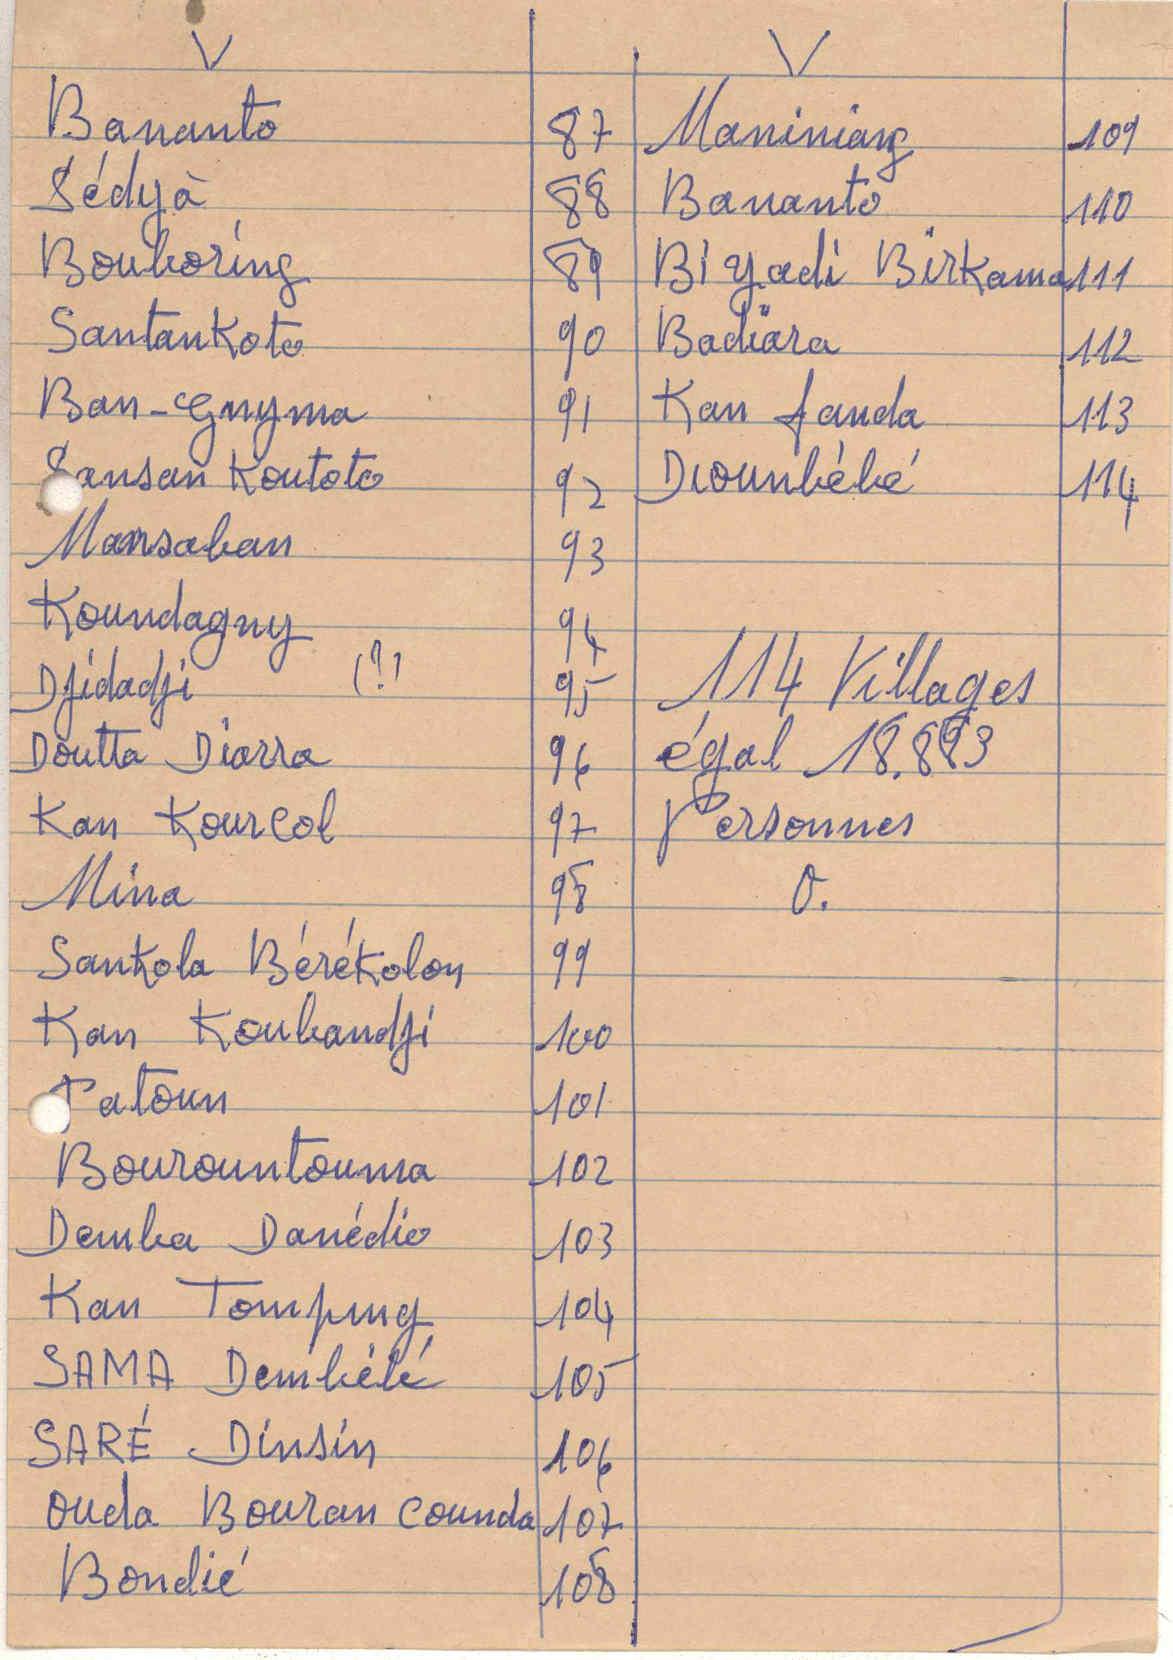 V
Bananto 87
Sédyà 88
Boukoring 89
Santankoto 90
Ban-Gnyma 91
Sansan Koutoto 92
Mansaban 93
Koundagny 94
Djidadji (?) 95
Doutta Diarra 96
Kan Kourcol 97
Mina 98
Sankola Bérékolon 99
Kan Koubandji 100
Patoun 101
Bourountouma 102
Demba Danédio 103
Kan Tomping 104
SAMA Dembélé 105
SARÉ Dinsin 106
ouda Bouran counda 107
Bondié 108
V
Maniniang 109
Bananto 110
Biyadi Birkama 111
Badiara 112
Kan fanda 113
Diounbébé 114
114 Villages
égal
Personnes
O.